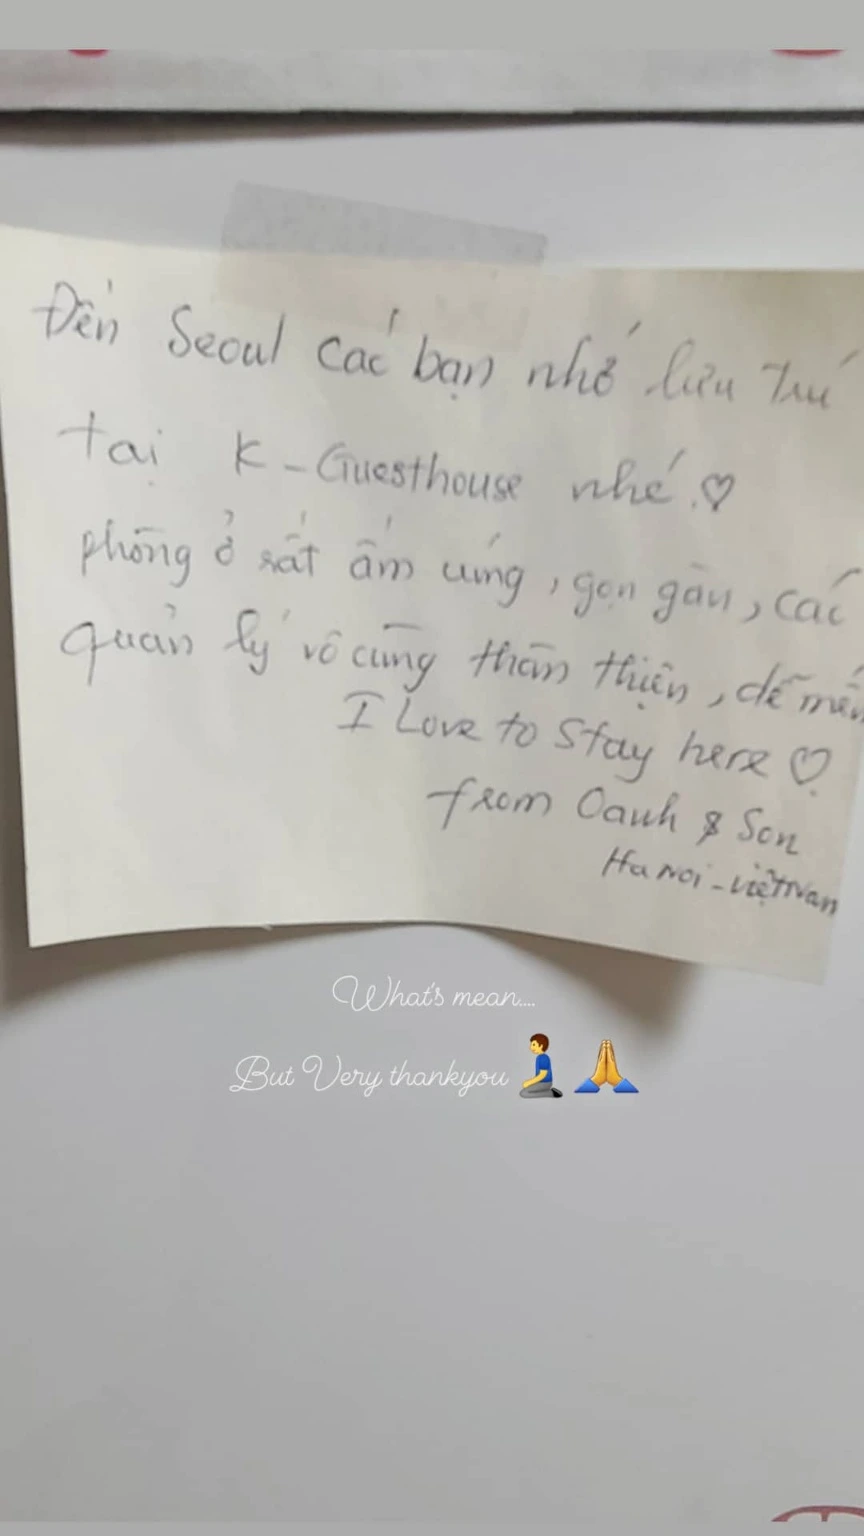 Đến Seoul các bạn nhớ lưu trú
tại K-Guesthouse nhé ♡
phòng ở rất ấm cúng, gọn gàng, các
quản lý vô cùng thân thiện, dễ mến
I Love to Stay here ♡
from Oanh & Son
Ha Noi - Việt Nam
What's mean....
But Very thankyou 🧎‍♂️🙏